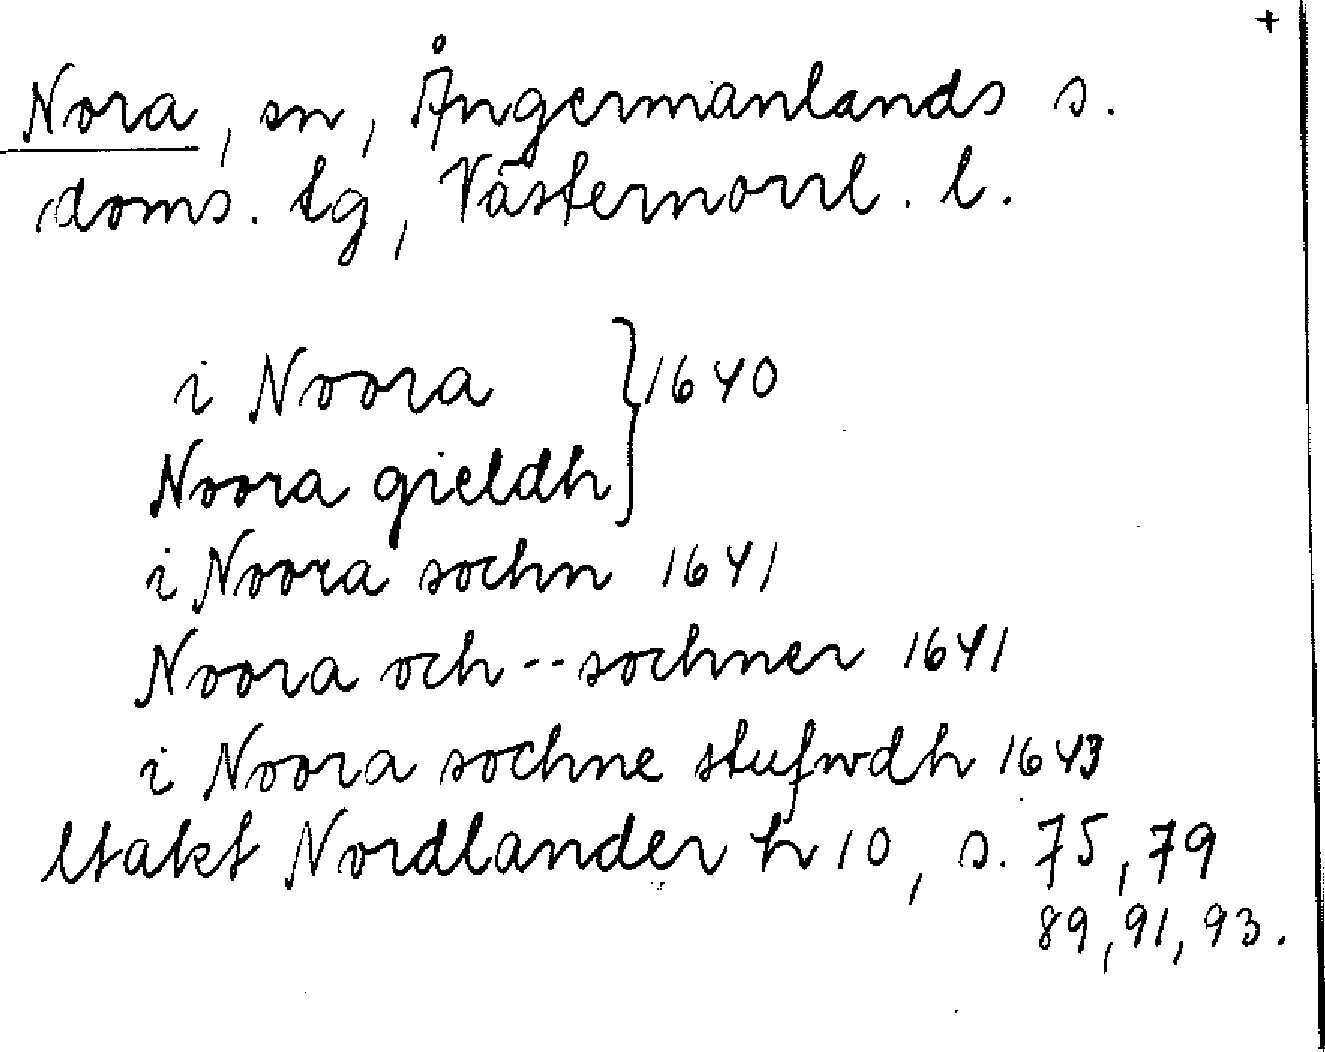 +
Nora, sn, Ångermanlands s.
doms. tg, Västernorrl. l.
i Noora } 1640
Noora gieldh
i Noora sochn 1641
Noora och -- sochner 1641
i Noora sochne stufwdh 1643
Utakt Nordlander h 10, s. 75, 79
89, 91, 93.